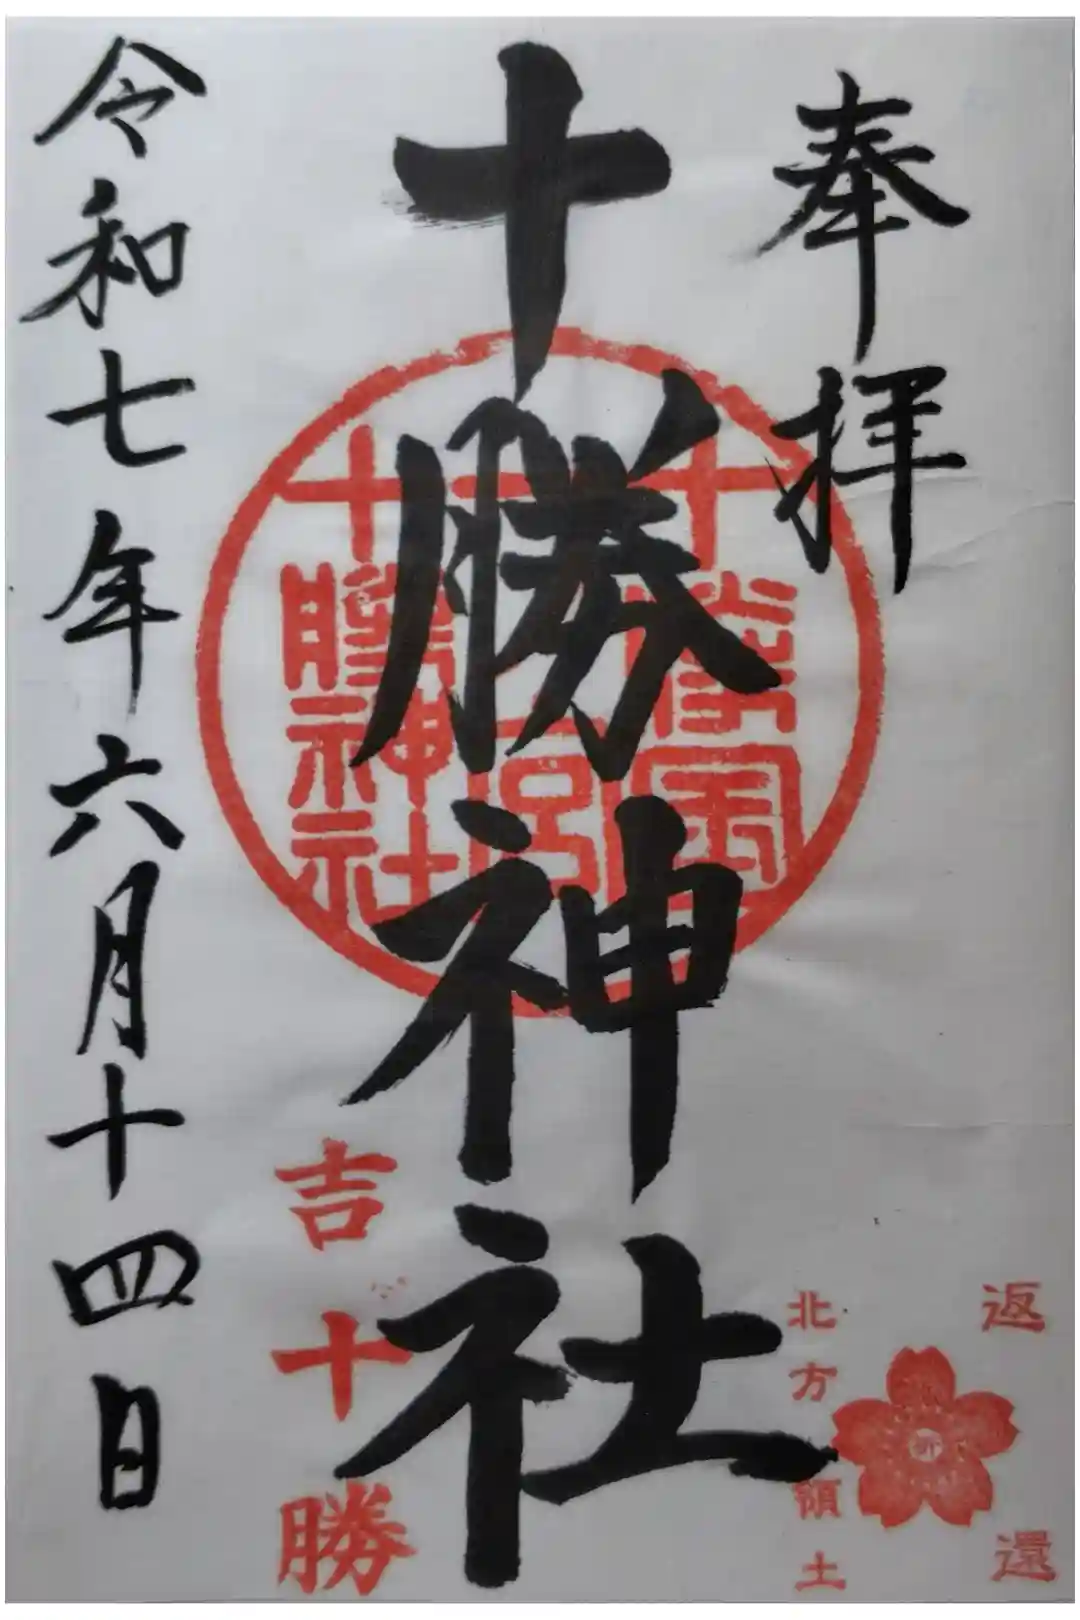 奉拝
十勝國
一宮
十勝神社
十勝神社
吉十勝
令和七年六月十四日
返還
祈
北方領土